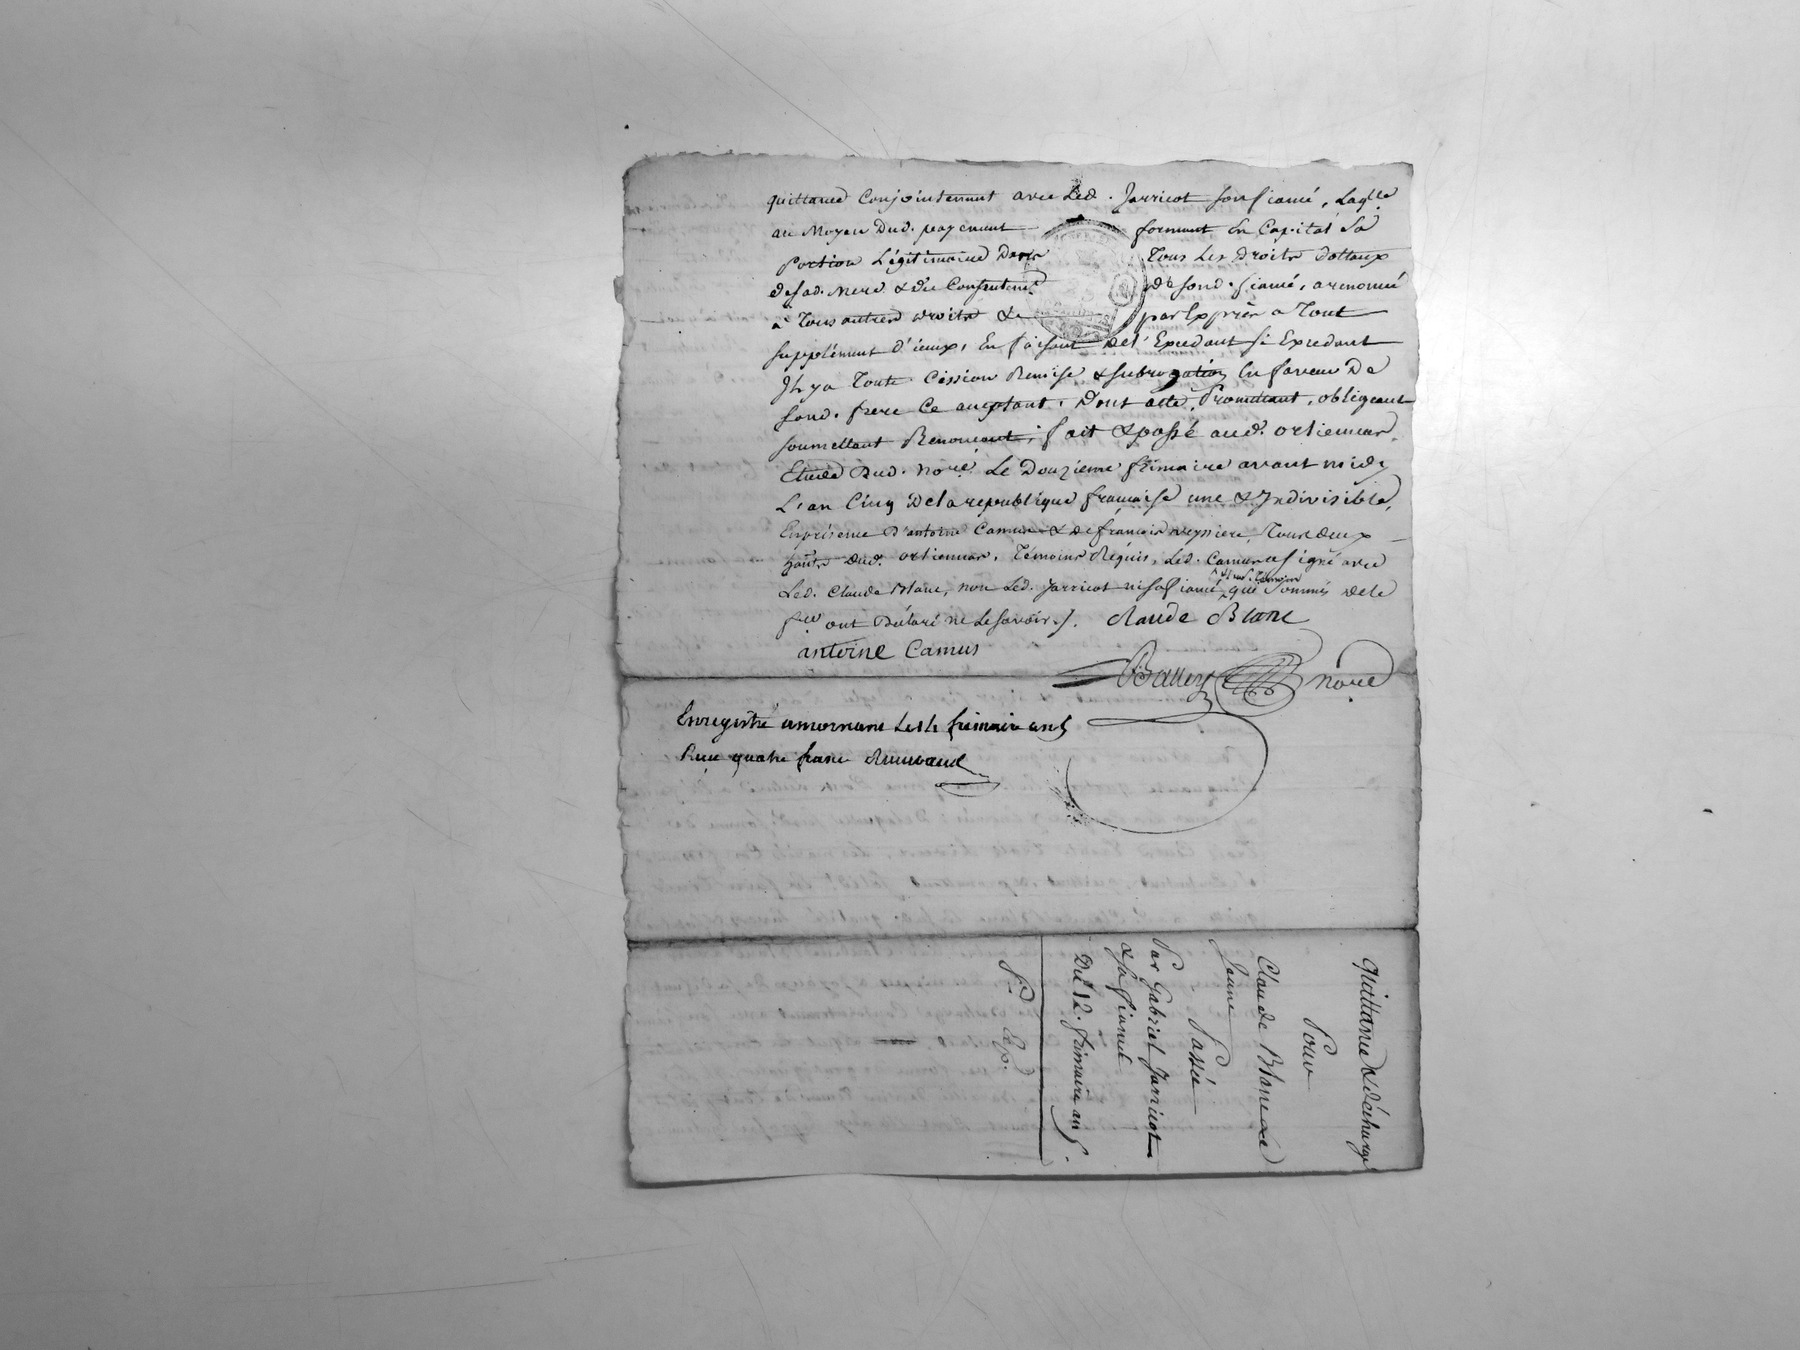 quittance Conjointement avec Led. Jarricot son fiancé, Laqlle
au Moyen Dud. payement formant En Capital Sa
Portion Légitimaire Dans Tous Les Droits dottaux
de sad. Mere & du Consentemt. De sond. fiancé, a renoncé
à Tous autres droits & par Exprès a Tout
supplément d'iceux, En faisant De l'Excedant si Excedant
Il y a Toute Cession Remise & subrogation En faveur De
sond. frere Ce acceptant. Dont acte, Promettant, obligeant
soumettant Renoncant, fait & passé aud. orlienas,
Etude Dud. Noré. Le Douzieme frimaire avant midy
L'an Cinq De la republique francaise une & Indivisible,
En présence D'antoine Camus & de françois meyniere, Tous deux
hants dud. orlienas, Témoins Requis, Led. Camus a signé avec
Led. Claude Blanc, non Led. Jarricot ni sa fiancé que Sommés de le
fre ont Déclaré ne Le savoir ./. Claude Blanc
antoine Camus
noré
Enregistré a mornant Le 14 frimaire an 5
Reçu quatre francs
Quittance & décharge
Pour
Claude Blanc
Jeune
Passée
Par Gabriel Jarricot
& sa fiancée
Du 12. frimaire an 5.
Exp.